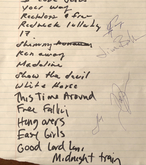 your way.
Reckless & free
Redneck lullaby
17.
Shimmy
Ran away
Madeline
Show the devil
White Horse
This Time Around
Free Fallin
Hangovers
Easy Girls
Good Lord Lori
Midnight train